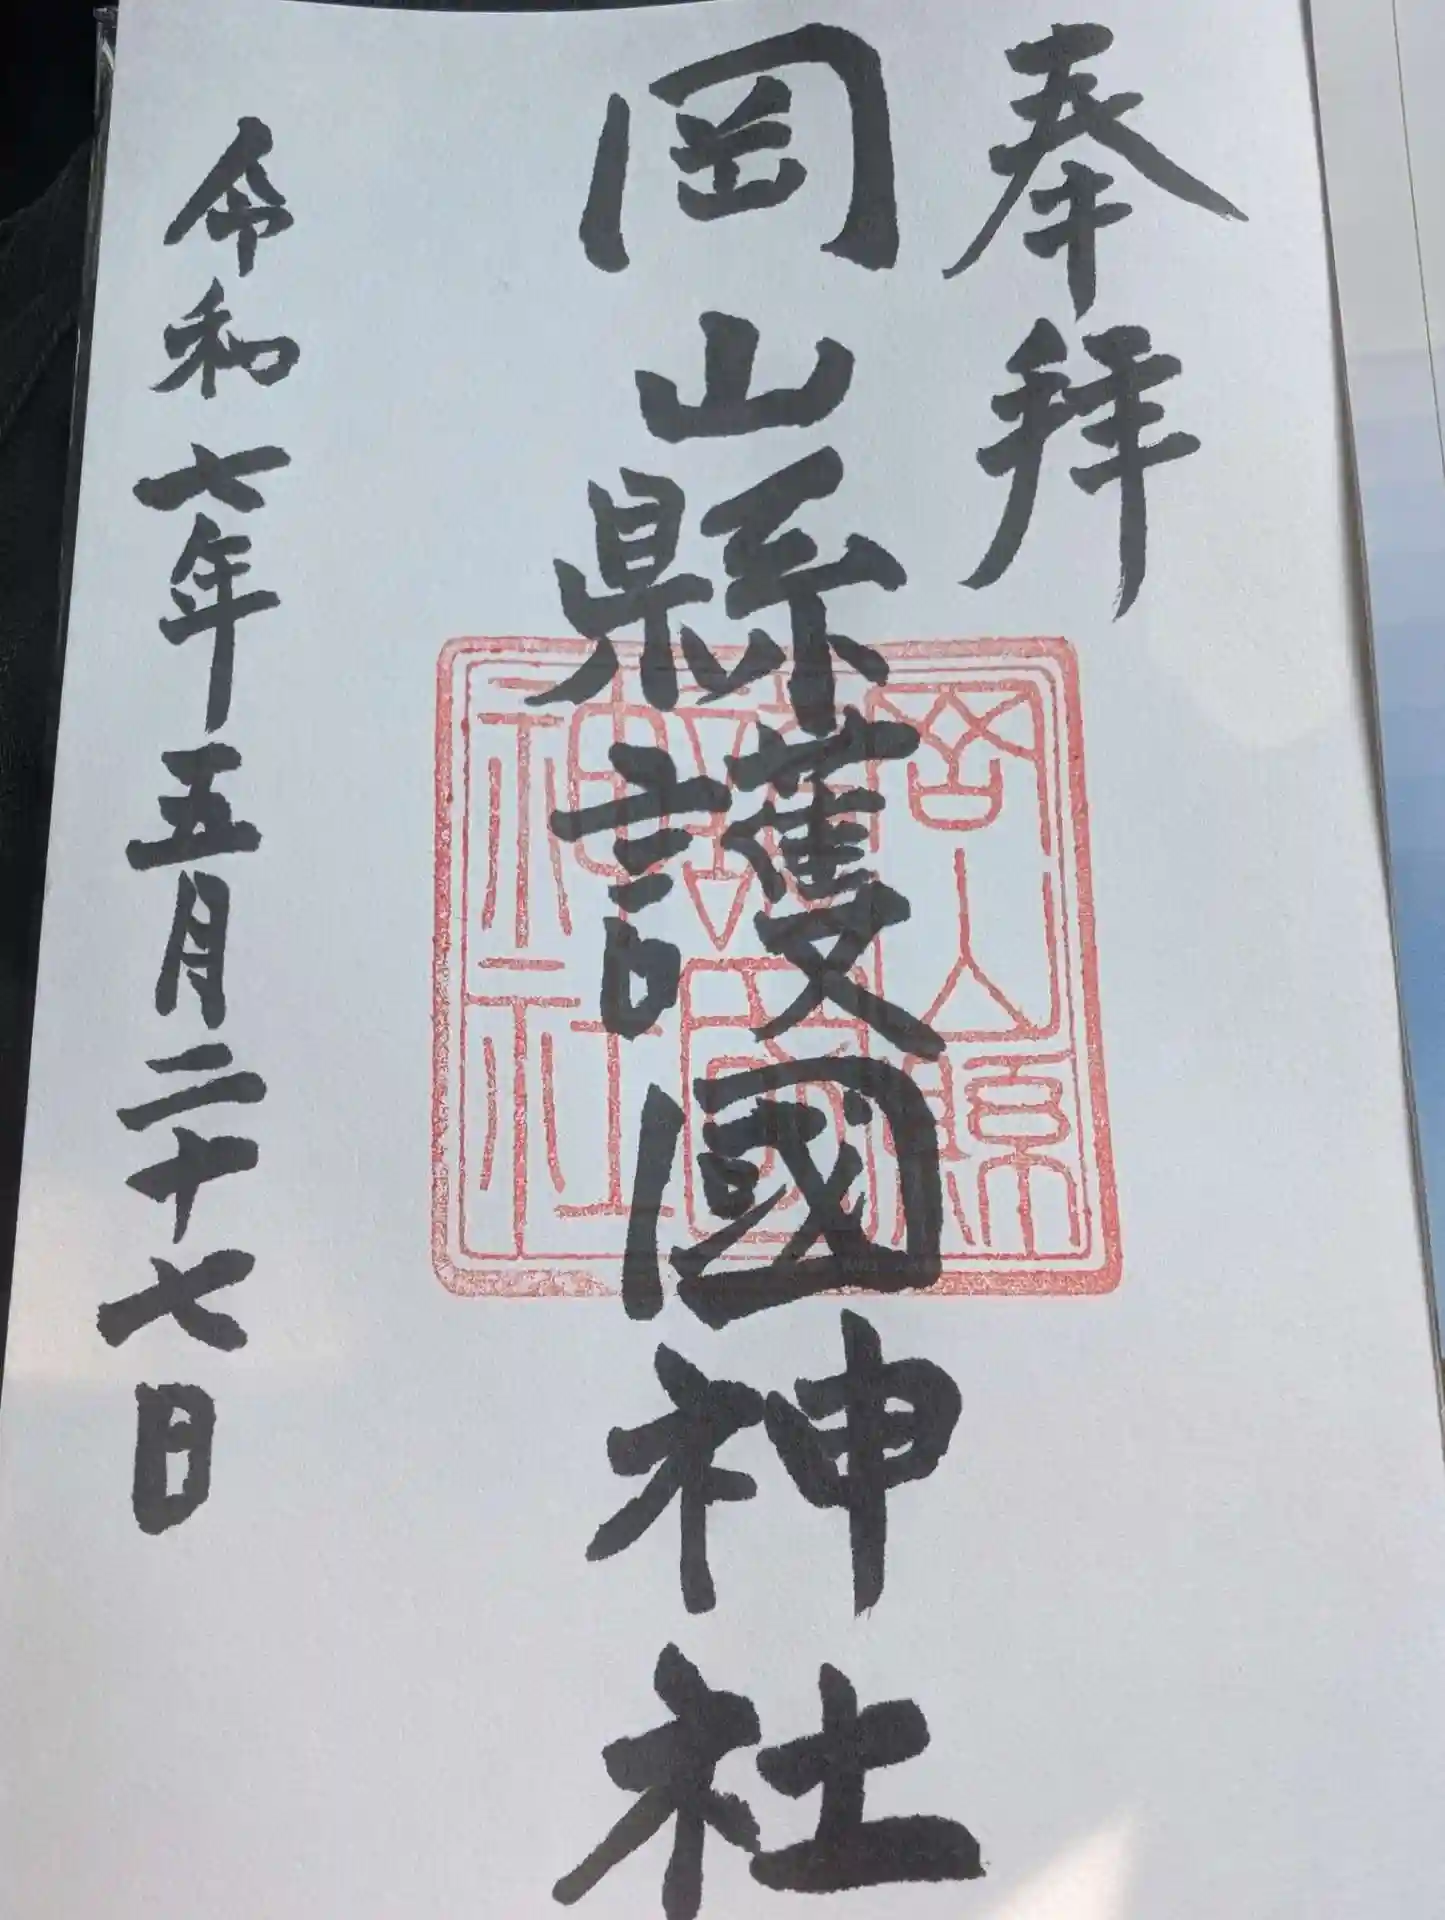 奉拝
岡山縣護國神社
岡山縣
護國
神社
令和七年五月二十七日